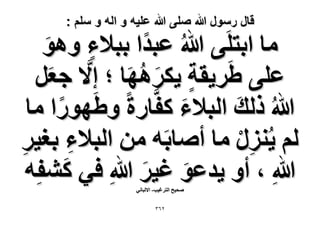 قال رسول الله صلى الله عليه و اله و سلم :
ما ابتلَى اللهُ عبدًا ببلاءٍ وهوَ
على طَريقةٍ يكرَهُهَا ؛ إلَّا جعَل
اللهُ ذلكَ البلاءَ كفَّارةً وطَهورًا ما
لم يُنزِلْ ما أصابَه من البلاءِ بغيرِ
اللهِ ، أو يدعوَ غيرَ اللهِ في كَشفِه
صحيح الترغيب- الالباني
٣٦٢